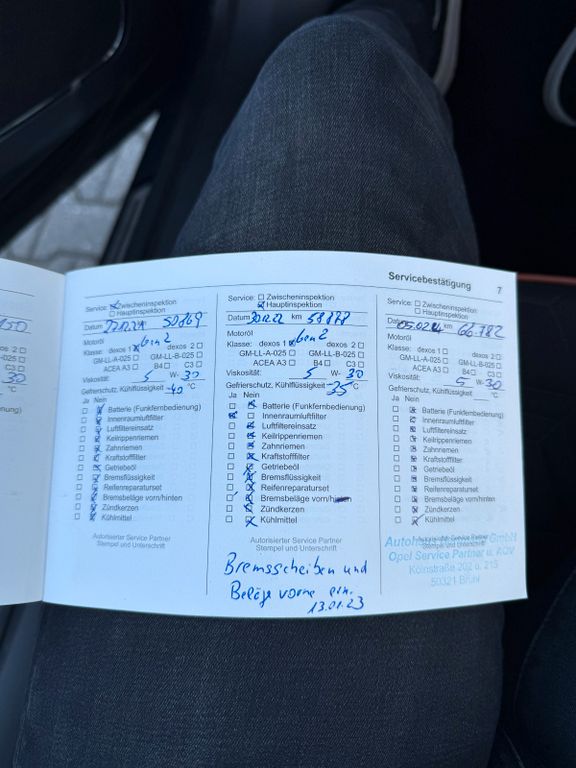 Servicebestätigung 7
Service: Zwischeninspektion
Hauptinspektion
Datum 22.12.21 50869
Motoröl
Gen2
Klasse: dexos 1 dexos 2
GM-LL-A-025 GM-LL-B-025
ACEA A3 B4 C3
Viskosität: 5 W- 30
Gefrierschutz, Kühlflüssigkeit -40 °C
Ja Nein
Batterie (Funkfernbedienung)
Innenraumluftfilter
Luftfiltereinsatz
Keilrippenriemen
Zahnriemen
Kraftstofffilter
Getriebeöl
Bremsflüssigkeit
Reifenreparaturset
Bremsbeläge vorn/hinten
Zündkerzen
Kühlmittel
Autorisierter Service Partner
Stempel und Unterschrift
Service: Zwischeninspektion
Hauptinspektion
Datum 20.12.22 km 58878
Motoröl
Gen2
Klasse: dexos 1 dexos 2
GM-LL-A-025 GM-LL-B-025
ACEA A3 B4 C3
Viskosität: 5 W- 30
Gefrierschutz, Kühlflüssigkeit -35 °C
Ja Nein
Batterie (Funkfernbedienung)
Innenraumluftfilter
Luftfiltereinsatz
Keilrippenriemen
Zahnriemen
Kraftstofffilter
Getriebeöl
Bremsflüssigkeit
Reifenreparaturset
Bremsbeläge vorn/hinten
Zündkerzen
Kühlmittel
Autorisierter Service Partner
Stempel und Unterschrift
Bremsscheiben und
Beläge vorne ern.
13.01.23
Service: Zwischeninspektion
Hauptinspektion
Datum 05.02.24 km 66.782
Motoröl
Klasse: dexos 1 dexos 2
GM-LL-A-025 GM-LL-B-025
ACEA A3 B4 C3
Viskosität: 5 W- 30
Gefrierschutz, Kühlflüssigkeit °C
Ja Nein
Batterie (Funkfernbedienung)
Innenraumluftfilter
Luftfiltereinsatz
Keilrippenriemen
Zahnriemen
Kraftstofffilter
Getriebeöl
Bremsflüssigkeit
Reifenreparaturset
Bremsbeläge vorn/hinten
Zündkerzen
Kühlmittel
Autorisierter Service Partner
Stempel und Unterschrift
GmbH
Opel Service Partner u. AÜV
Kölnstraße 202 u. 215
50321 Brühl